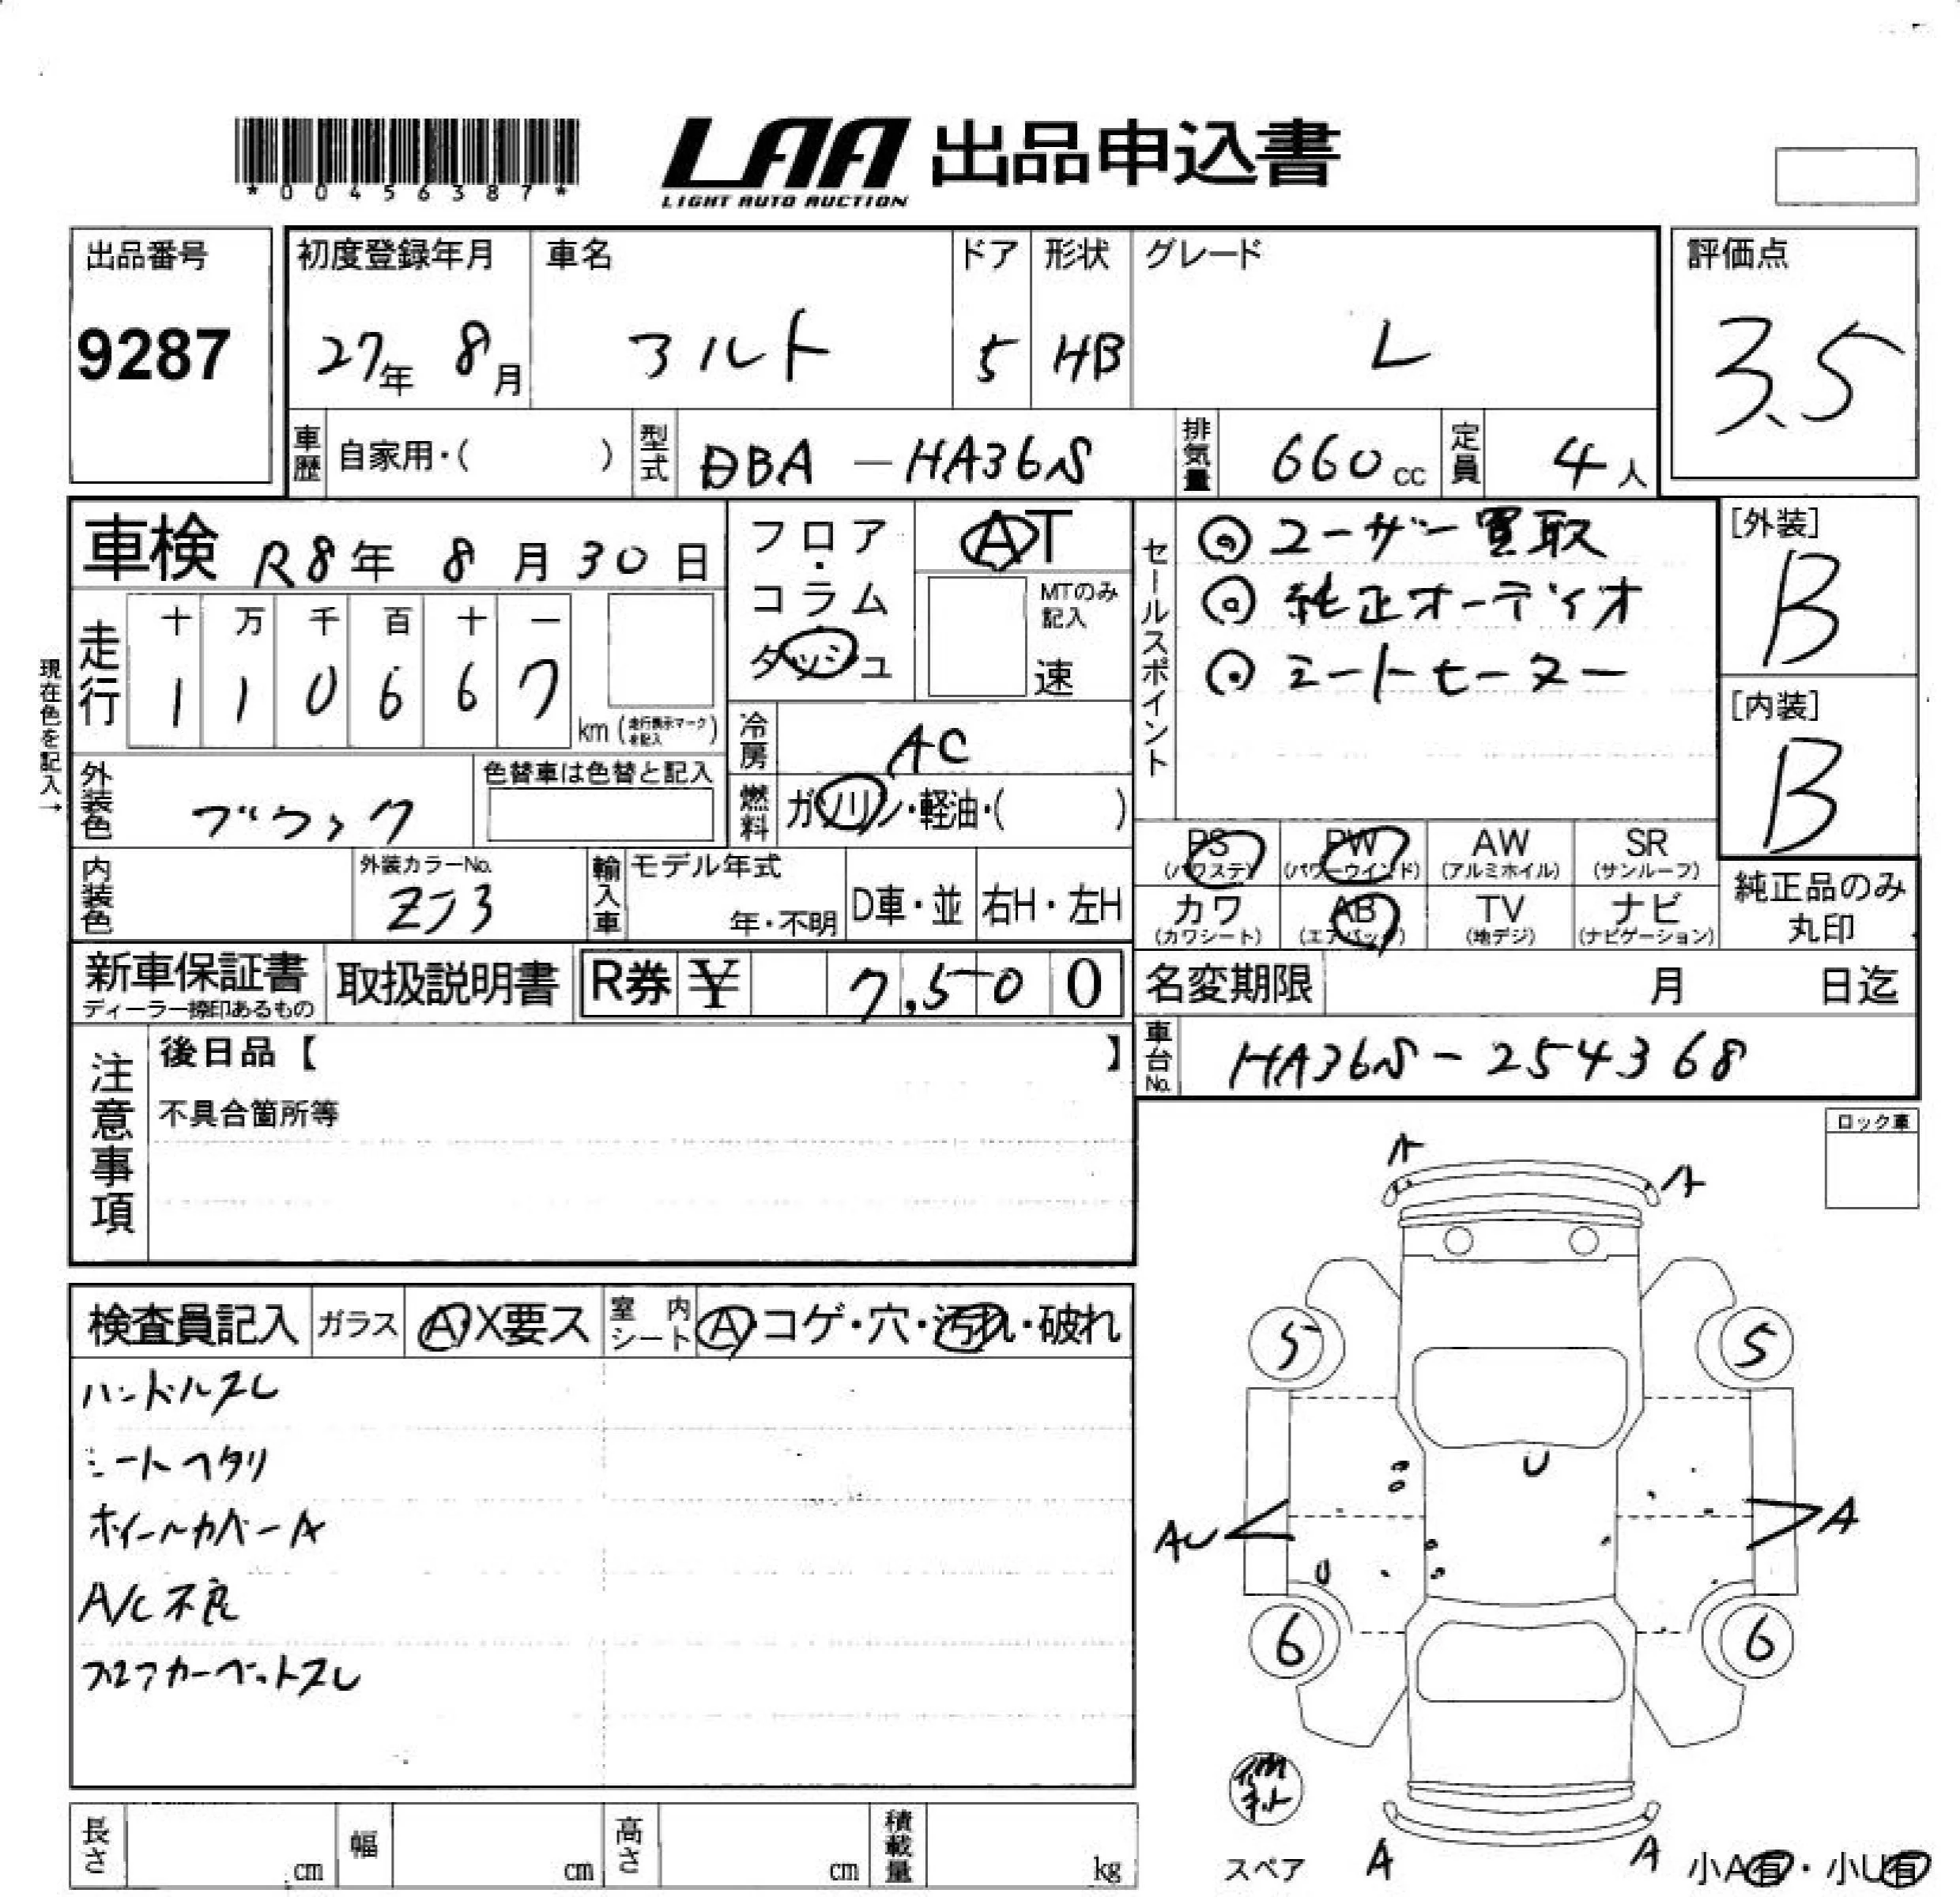 *00456387*
LAA 出品申込書
LIGHT AUTO AUCTION
出品番号
9287
初度登録年月
27年 8月
車名
アルト
ドア
5
形状
HB
グレード
L
評価点
3.5
車歴 自家用・( )
型式 DBA-HA36S
排気量 660cc
定員 4人
車検 R8年 8月30日
フロア・コラム・ダッシュ
AT
MTのみ記入
速
セールスポイント
◎ユーザー買取
◎純正オーディオ
◎シートヒーター
[外装]
B
[内装]
B
現在色を記入→
走行
十 万 千 百 十 一
1 1 0 6 6 7
km (走行表示マークを記入)
冷房 AC
燃料 ガソリン・軽油・( )
外装色 ブラック
色替車は色替と記入
内装色
外装カラーNo.
ZJ3
輸入車
モデル年式
年・不明
D車・並
右H・左H
PS (パワステ)
PW (パワーウインド)
AW (アルミホイル)
SR (サンルーフ)
カワ (カワシート)
AB (エアバック)
TV (地デジ)
ナビ (ナビゲーション)
純正品のみ丸印
新車保証書
ディーラー捺印あるもの
取扱説明書
R券 ¥ 7,500
名変期限 月 日迄
車台No. HA36S-254368
注意事項
後日品【 】
不具合箇所等
ロック車
検査員記入
ガラス A・X要ス
室内シート A・コゲ・穴・汚れ・破れ
ハンドルスレ
シートヘタリ
ホイールカバーA
A/C不良
フロアカーペットスレ
A
A
5
5
U
AU
A
U
6
6
スペア
A
A
小A有・小U有
長さ cm
幅 cm
高さ cm
積載量 kg